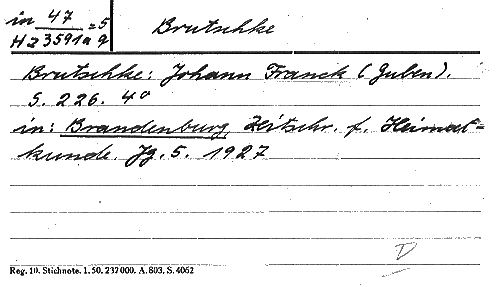 in 47 = 5
Hz 3591a 9
Brutschke
Brutschke: Johann Franck (Guben).
S. 226. 4°
in: Brandenburg, Zeitschr. f. Heimat-
kunde. Jg. 5. 1927
D
Reg. 10. Stichnote. 1. 50. 237000. A. 803. S. 4052